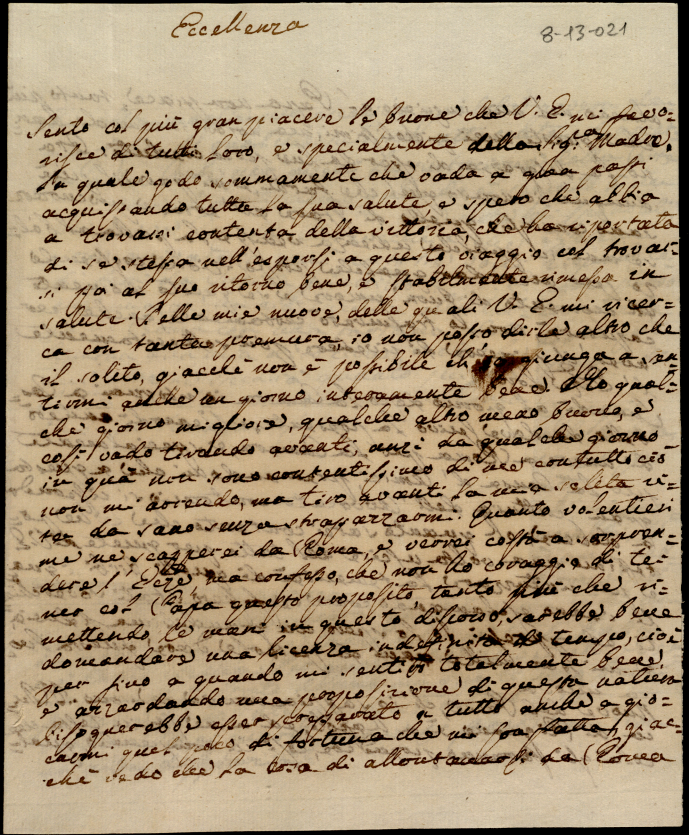 Eccellenza
8-13-021
Sento col più gran piacere le buone che V. E. mi favo=
risce di tutti Loro, e specialmente della Sig.a Madre,
la quale godo sommamente che vada a gran passi
acquistando tutta la sua salute, e spero che abbia
a trovarsi contenta della vittoria, che ha riportata
di se stessa nell'esporsi a questo viaggio col trovar=
si poi al suo ritorno bene, e stabilmente rimessa in
salute. Delle mie nuove, delle quali V. E. mi ricer=
ca con tanta premura, io non posso dirle altro che
il solito, giacchè non è possibile ch'io giunga a sen=
tirmi anche un giorno interamente bene. Ho qual=
che giorno migliore, qualche altro meno buono, e
così vado tirando avanti, anzi da qualche giorno
in quà non sono contentissimo di me contuttociò
non mi arrendo, ma tiro avanti la mia solita vi=
ta da sano senza strapazzarmi. Quanto volentieri
me ne scapperei da Roma, e verrei costà a sorpren=
dere l'Ecc.ze ma confesso, che non ho coraggio di te=
ner col Papa questo proposito tanto più che ri=
mettendo le mani in questo discorso, sarebbe bene
domandare una licenza indefinita di tempo, cioè
per fino a quando mi sentissi totalmente bene,
e azzardando una proposizione di questa natura
bisognerebbe esser preparato a tutto anche a gio=
carmi quel poco di fortuna che mi son fatta, giac=
chè vedo che la cosa di allontanarsi da Roma